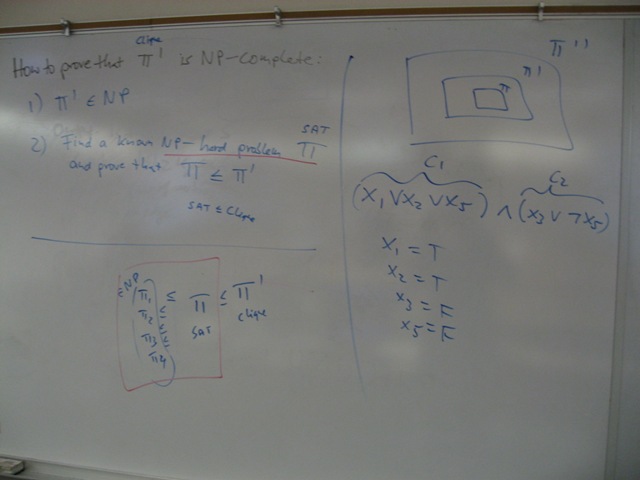 Clique
How to prove that Π' is NP-Complete:
1) Π' ∈ NP
SAT
2) Find a known NP-hard problem Π
and prove that Π ≤ Π'
SAT ≤ Clique
∈NP
Π1 ≤ Π ≤ Π'
Π2 ≤
Π3 ≤
Π4
SAT
Clique
Π''
Π'
Π
C1 C2
(x1 ∨ x2 ∨ x5) ∧ (x3 ∨ ¬x5)
x1 = T
x2 = T
x3 = F
x5 = F